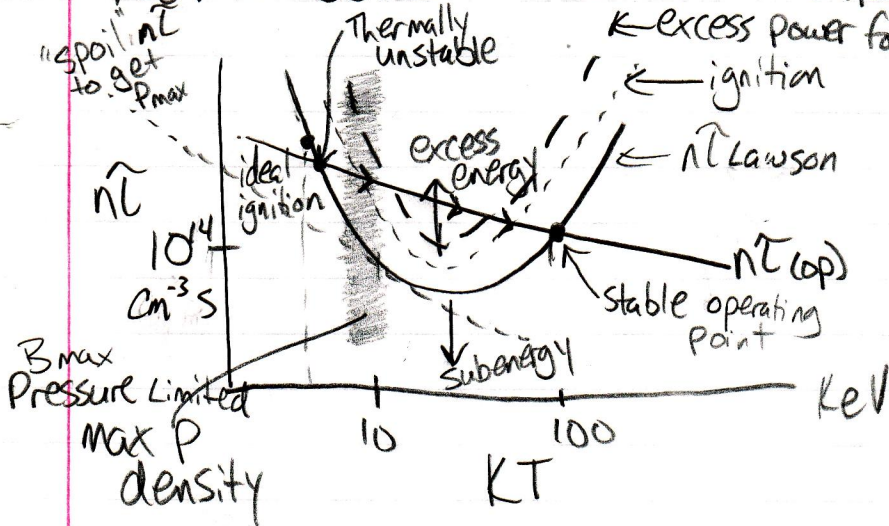 "spoil" nτ
to get
Pmax
Thermally
unstable
excess power fo
ignition
nτ Lawson
excess
energy
ideal
ignition
nτ
10¹⁴
cm⁻³ s
nτ(op)
stable operating
point
subenergy
Bmax
Pressure Limited
max p
density
10
100
KeV
KT